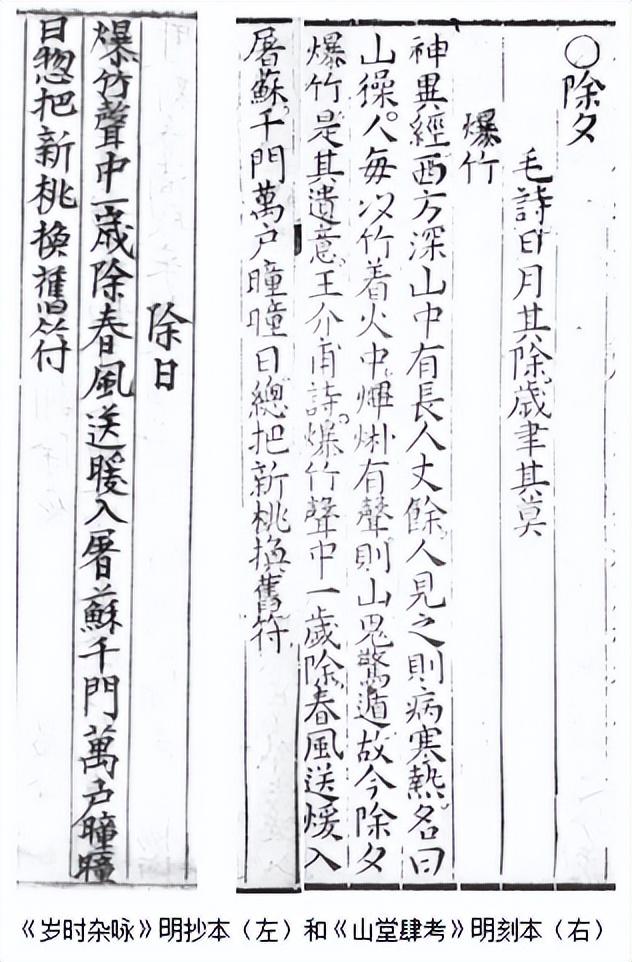 ○除夕
毛詩日月其除歲聿其莫
爆竹
神異經西方深山中有長人丈餘人見之則病寒熱名曰
山操人每以竹着火中熚烞有聲則山鬼驚遁故今除夕
爆竹是其遺意王介甫詩爆竹聲中一歲除春風送煖入
屠蘇千門萬户曈曈日總把新桃換舊符
除日
爆竹聲中一歲除春風送暖入屠蘇千門萬户曈曈
日惣把新桃換舊符
《岁时杂咏》明抄本（左）和《山堂肆考》明刻本（右）